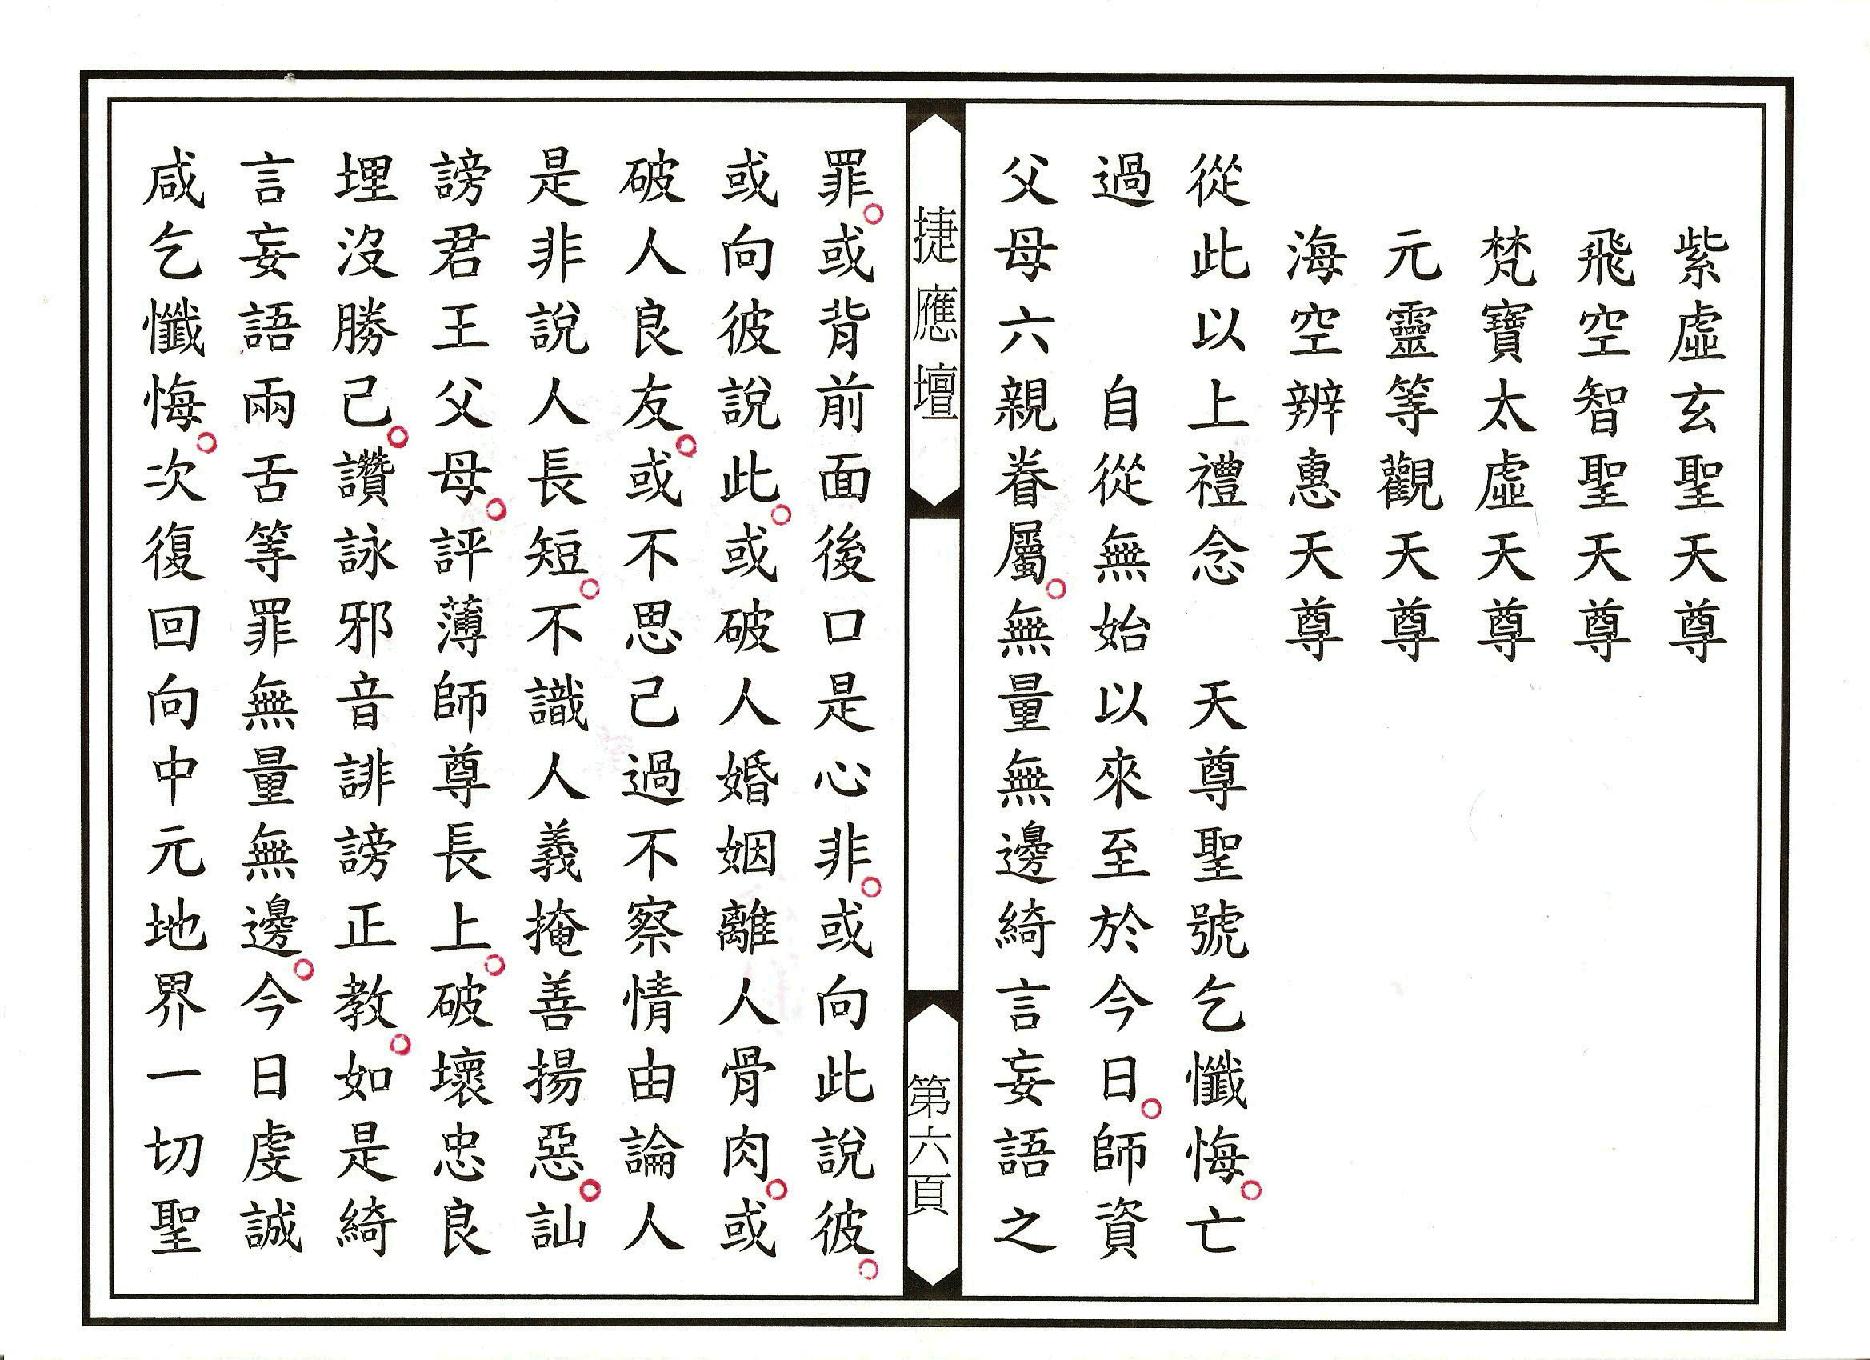 紫虛玄聖天尊
飛空智聖天尊
梵寶太虛天尊
元靈等觀天尊
海空辨惠天尊
從此以上禮念　天尊聖號乞懺悔。亡
過　　自從無始以來至於今日。師資
父母六親眷屬。無量無邊綺言妄語之
捷應壇
第六頁
罪。或背前面後口是心非。或向此說彼。
或向彼說此。或破人婚姻離人骨肉。或
破人良友。或不思己過不察情由論人
是非說人長短。不識人義掩善揚惡。訕
謗君王父母。評薄師尊長上。破壞忠良
埋沒勝己。讚詠邪音誹謗正教。如是綺
言妄語兩舌等罪無量無邊。今日虔誠
咸乞懺悔。次復回向中元地界一切聖